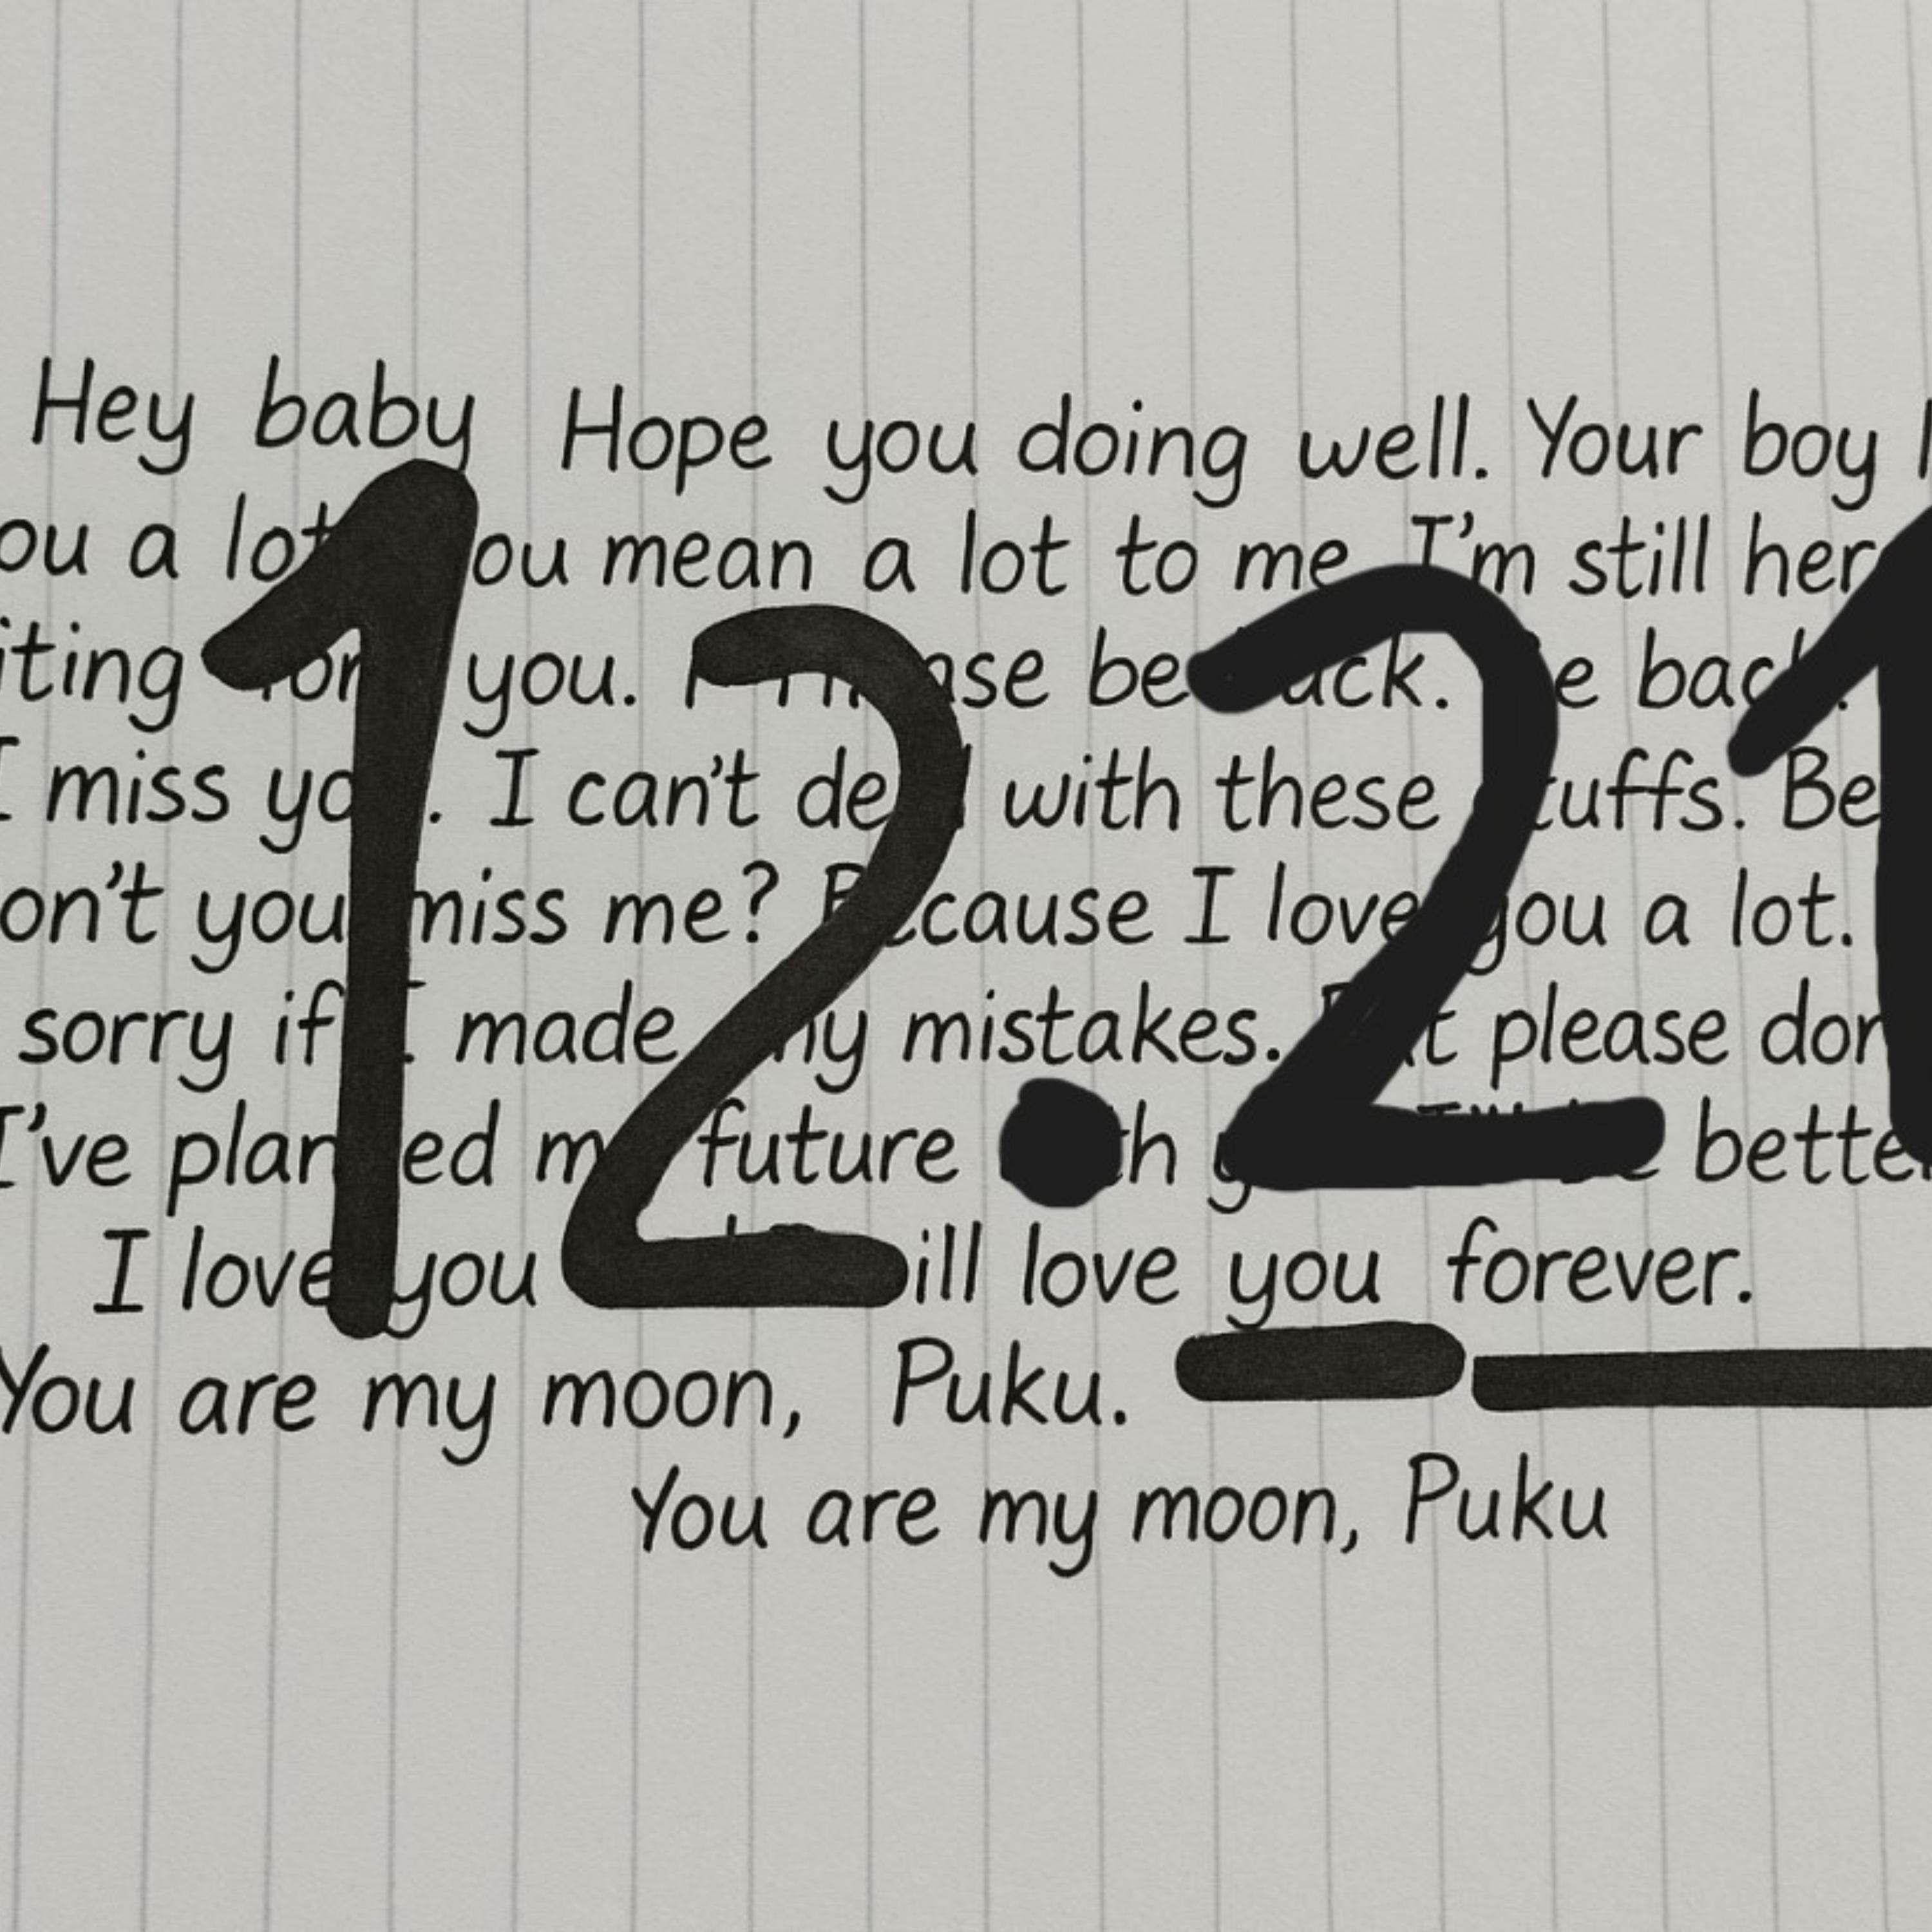 Hey baby Hope you doing well. Your boy
you a lot. You mean a lot to me. I'm still here
waiting for you. Please be back. Be back.
I miss you. I can't deal with these stuffs. Be
don't you miss me? Because I love you a lot.
sorry if I made any mistakes. But please don't
I've planned my future with you. I'll be better
I love you and will love you forever.
You are my moon, Puku.
You are my moon, Puku
12.21